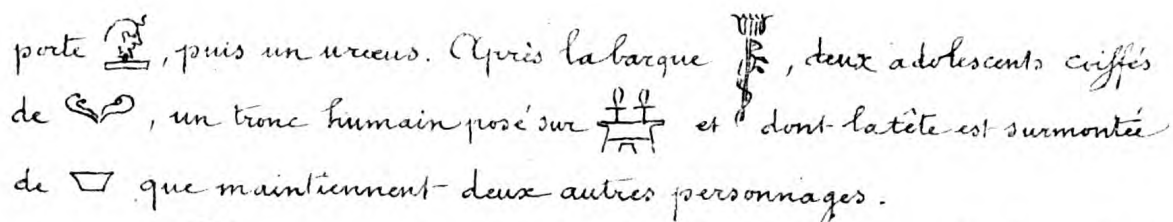 porte , puis un uræus. Après la barque , deux adolescents coiffés
de , un tronc humain posé sur et dont la tête est surmontée
de que maintiennent deux autres personnages.